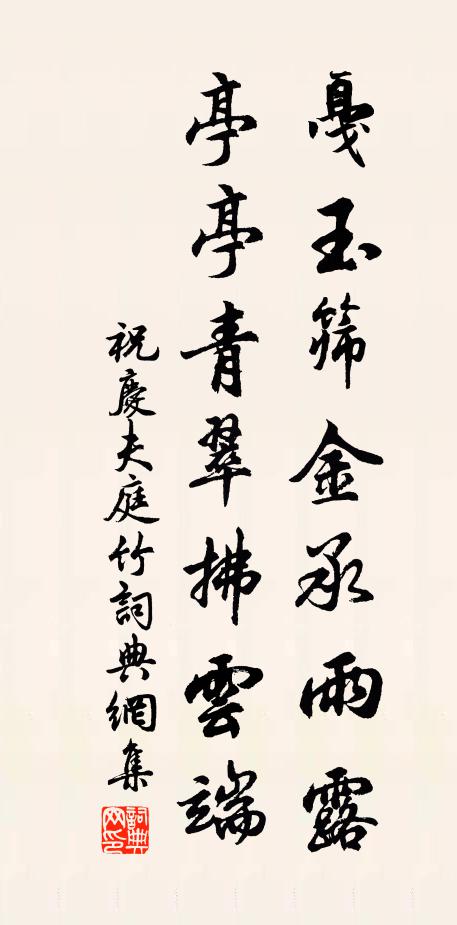 戛玉篩金承雨露
亭亭青翠拂雲端
祝慶夫庭竹詞典網集
詞典
网印